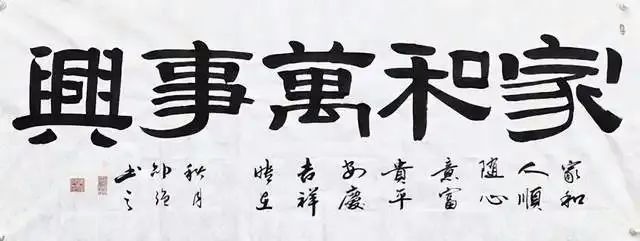 家和萬事興
家和
人順
随心
意富
貴平
安慶
吉祥
时在
秋月
书之